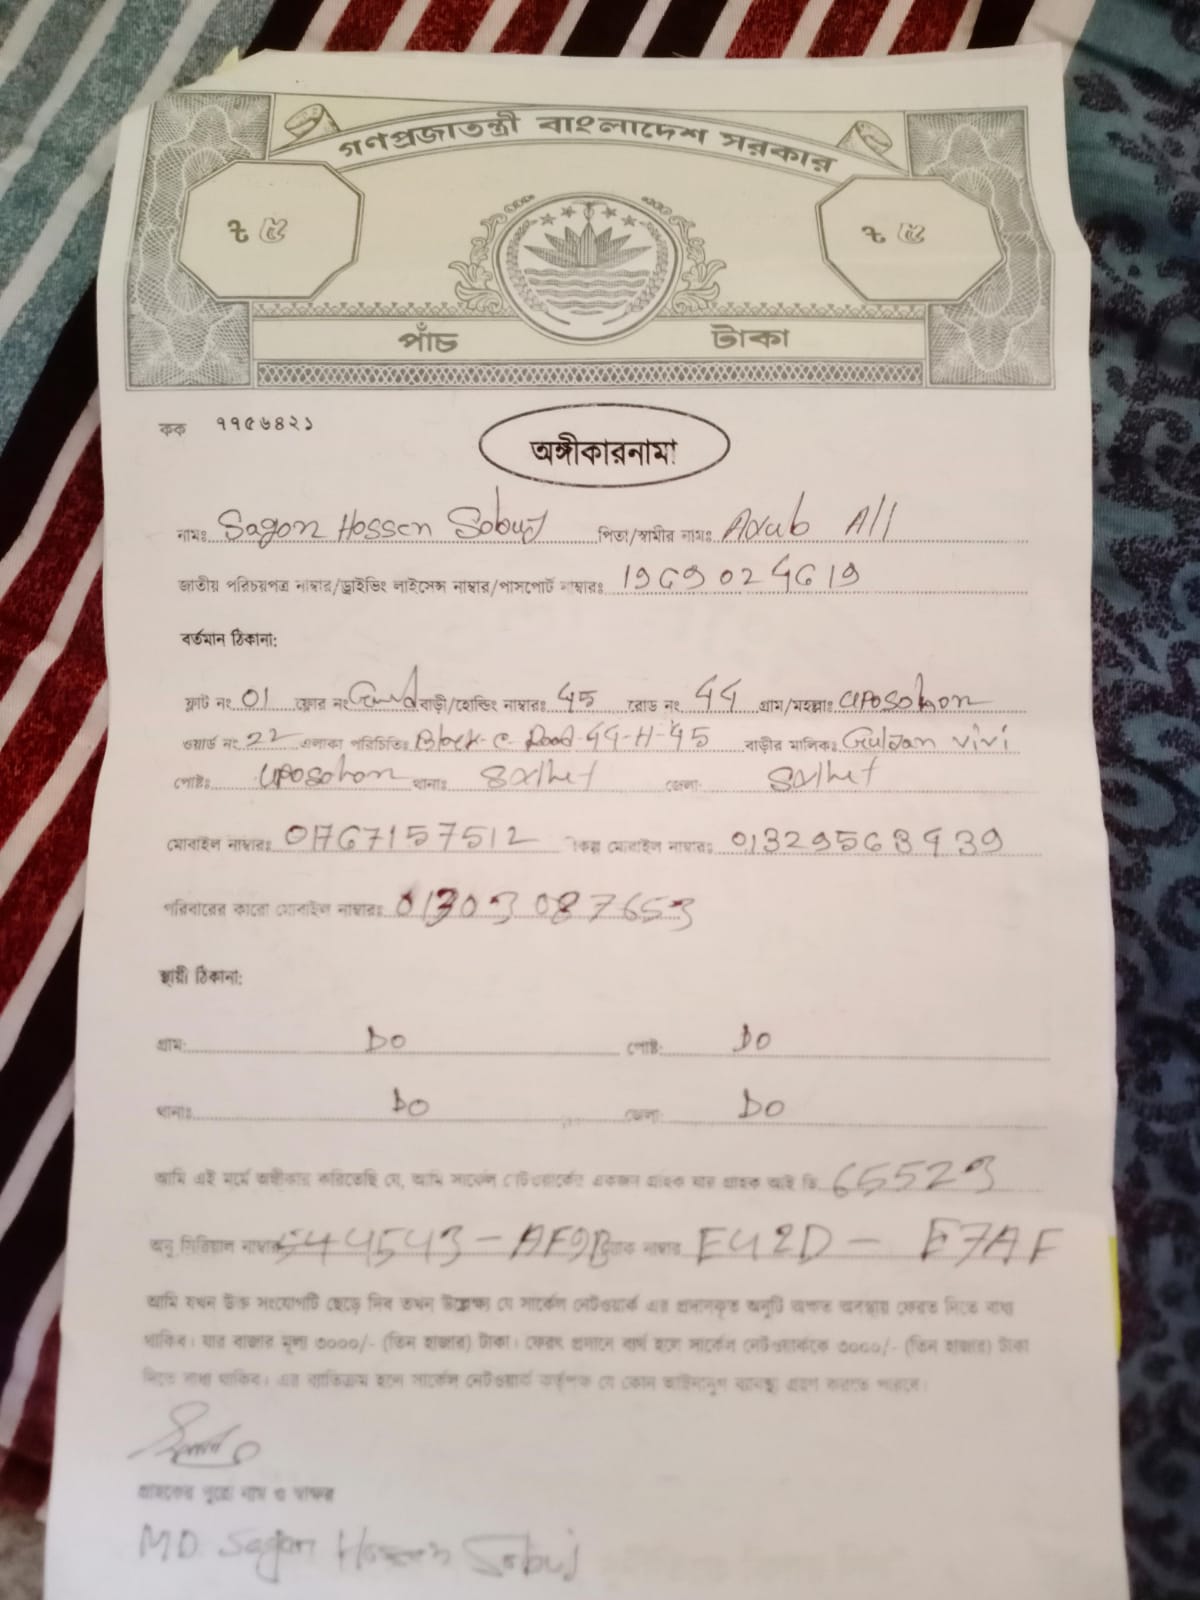 গণপ্রজাতন্ত্রী বাংলাদেশ সরকার
৳ ৫ ৳ ৫
পাঁচ টাকা
কক ৭৭৫৬৪২১
অঙ্গীকারনামা
নামঃ Sagon Hossen Sobuj পিতা/স্বামীর নামঃ
জাতীয় পরিচয়পত্র নাম্বার/ড্রাইভিং লাইসেন্স নাম্বার/পাসপোর্ট নাম্বারঃ
বর্তমান ঠিকানা:
ফ্লাট নং 01 ফ্লোর নং বাড়ী/হোল্ডিং নাম্বারঃ 45 রোড নং 44 গ্রাম/মহল্লাঃ uposohon
ওয়ার্ড নং 22 এলাকা পরিচিতিঃ Block-C-Road-44-H-45 বাড়ীর মালিকঃ Guljan vivi
পোষ্টঃ uposohon থানাঃ Sylhet জেলা: Sylhet
মোবাইল নাম্বারঃ 01767157512 মোবাইল নাম্বারঃ
পরিবারের কারো মোবাইল নাম্বারঃ 01303087653
স্থায়ী ঠিকানা:
গ্রাম: DO পোষ্ট: DO
থানাঃ DO জেলা: DO
আমি এই মর্মে অঙ্গীকার করিতেছি যে, আমি সার্কেল নেটওয়ার্কের একজন গ্রাহক যার গ্রাহক আই ডি 65523
অনু সিরিয়াল নাম্বার 544543-AF9B ম্যাক নাম্বার E42D - E7AF
আমি যখন উক্ত সংযোগটি ছেড়ে দিব তখন উল্লেখ্য যে সার্কেল নেটওয়ার্ক এর প্রদানকৃত অনুটি অক্ষত অবস্থায় ফেরত দিতে বাধ্য
থাকিব। যার বাজার মূল্য ৩০০০/- (তিন হাজার) টাকা। ফেরৎ প্রদানে ব্যর্থ হলে সার্কেল নেটওয়ার্ককে ৩০০০/- (তিন হাজার) টাকা
দিতে বাধ্য থাকিব। এর ব্যতিক্রম হলে সার্কেল নেটওয়ার্ক কর্তৃপক্ষ যে কোন আইনানুগ ব্যবস্থা গ্রহণ করতে পারবে।
গ্রাহকের পুরো নাম ও স্বাক্ষর
MD Sagon Hossen Sobuj